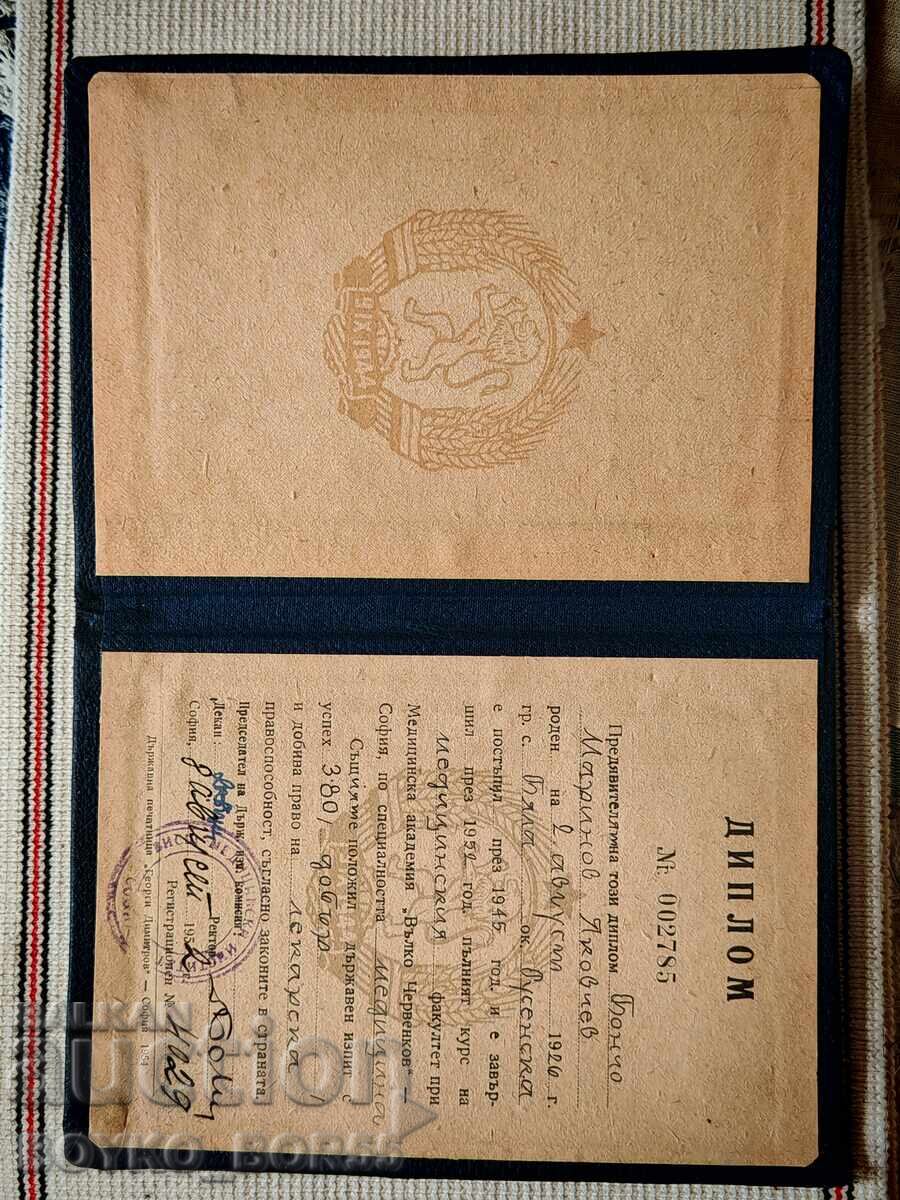 9·IX·1944
ДИПЛОМ
№ 002785
Предявителятна този диплом Бончо
Маринов Яковчев
роден на 2 август 1926 г.
гр. с. Бяла ок. Русенска
е постъпил през 1945 год. и е завър-
шил през 1952 год. пълният курс на
медицинския факултет при
Медицинска академия „Вълко Червенков“
София, по специалността медицина
Същият е положил държавен изпит с
успех 3·80/ добър /
и добива право на лекарска
правоспособност, съгласно законите в страната.
Председател на Държ. изп. комисия:
Декан: Ректор:
София, 8 август 1952 г.
Регистрационен №
Държавна печатница „Георги Димитров“ — София 1954
BALKAN
auction
BOYKO_BORSS